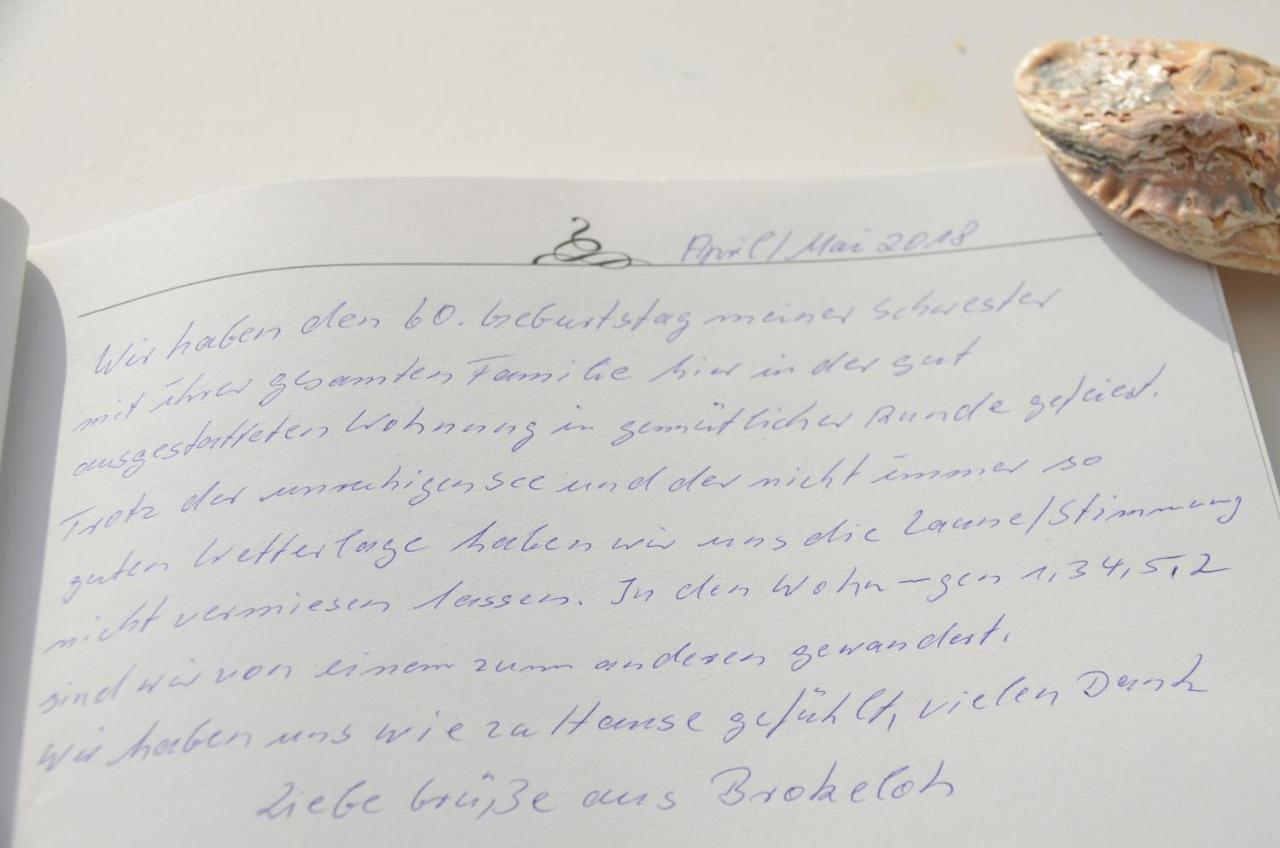 April/Mai 2018
Wir haben den 60. Geburtstag meiner Schwester
mit ihrer gesamten Familie hier in der gut
ausgestatteten Wohnung in gemütlicher Runde gefeiert.
Trotz der unruhigen See und der nicht immer so
guten Wetterlage haben wir uns die Laune/Stimmung
nicht vermiesen lassen. In den Wohn-gen 1,3 4,5,2
sind wir von einem zum anderen gewandert.
Wir haben uns wie zu Hause gefühlt, vielen Dank
Liebe Grüße aus Brokeloh